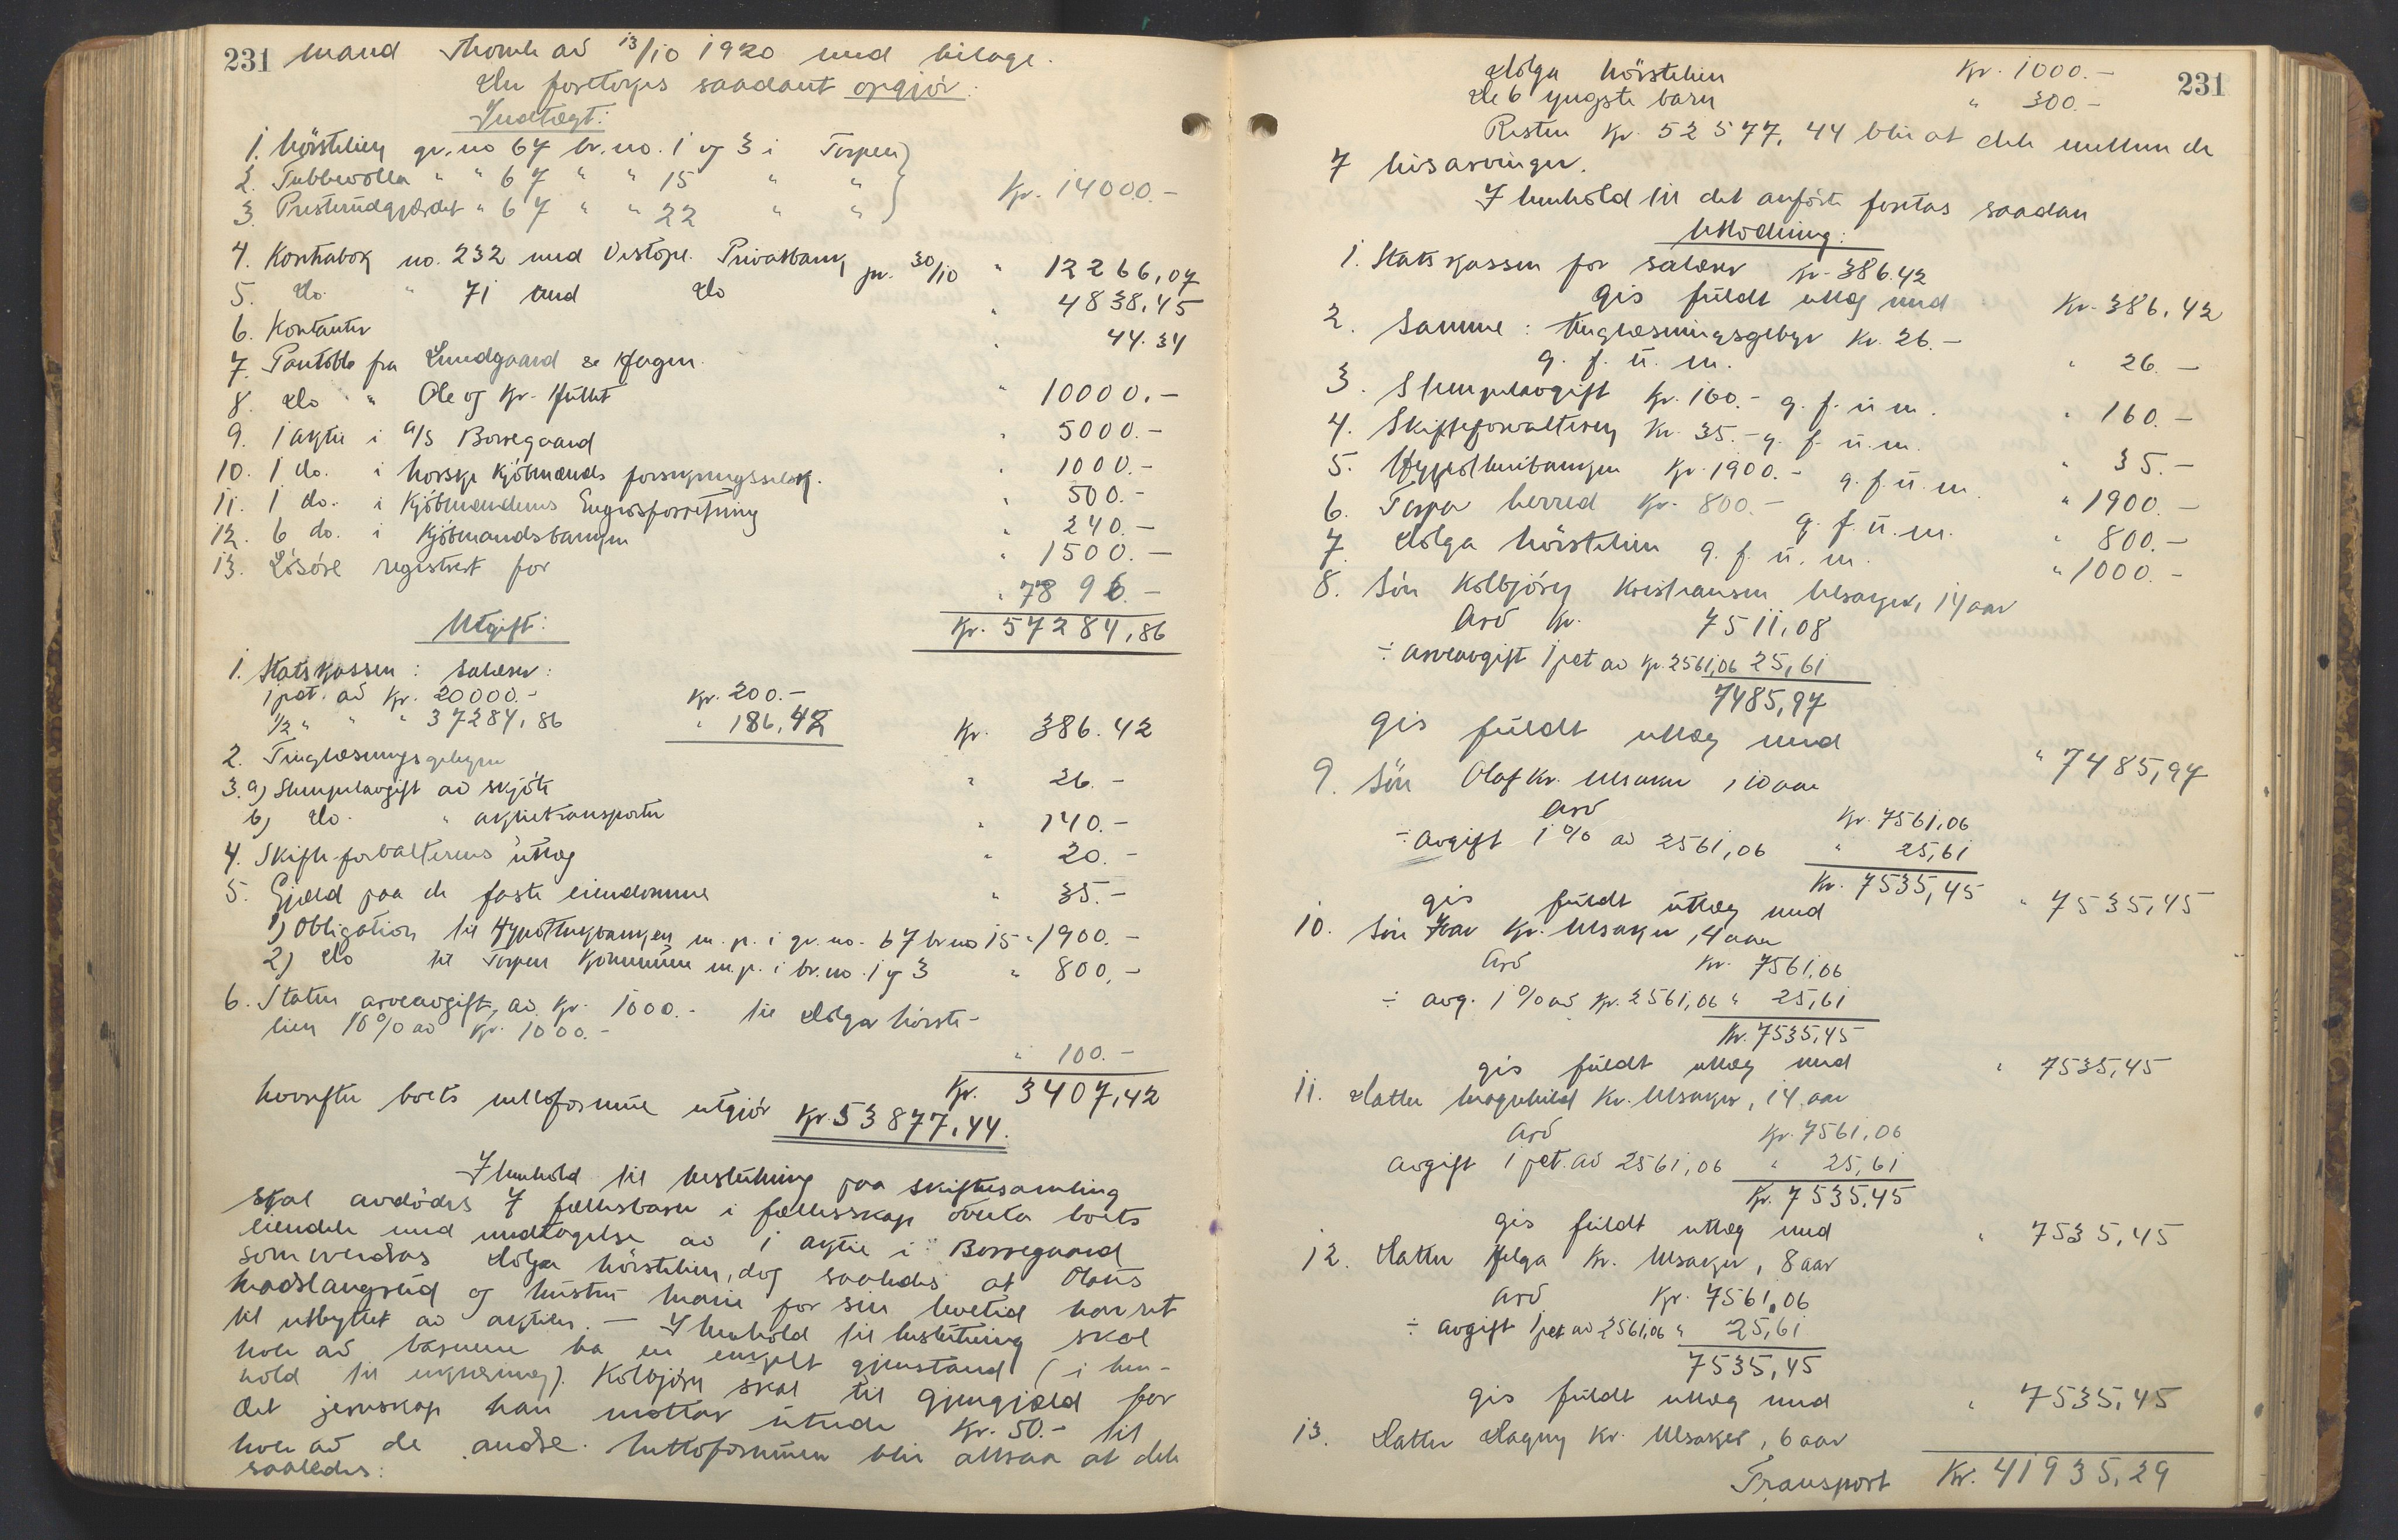 231 mand Thomle av 13/10 1920 med bilage.
Der foretokes saadant opgjör:
Indtægt:
1. Nörstelien gr.no 67 br.no. 1 og 3 i Torpen
2. Tubbevolla " " 67 " " 15 " "
3. Presterudgjærdet " 67 " " 22 " " Kr. 14000.-
4. Kontrabok no. 232 med Vestopl. Privatbank pr. 30/10 " 12266,07
5. do " 71 med do " 4838,45
6. Kontanter " 44.34
7. Pantobl. fra Lundgaard se Hagen " 10000.-
8. do " Ole og Kr. Hullet " 5000.-
9. 1 aktie i A/S Borregaard " 1000.-
10. 1 do. i Norske Kjöbmænds forsikringsselsk. " 500.-
11. 1 do. i Kjöbmændenes Engrosforretning " 240.-
12. 6 do. i Kjöbmandsbanken " 1500.-
13. Lösöre registrert for " 7896.-
Kr. 57284,86
Utgift:
1. Statskassen: Salærer:
1 pct. av Kr. 20000.- Kr. 200.-
1/2 " " " 37284,86 " 186,42 Kr. 386.42
2. Tinglæsningsgebyr " 26.-
3. a) Stempelavgift av skjöte " 140.-
b) do. " aktietransporter " 20.-
4. Skifteforvalterens utlæg " 35.-
5. Gjæld paa de faste eiendomme
1) Obligation til Hypotekbanken m. p. i gr. no. 67 br no 15 " 1900.-
2) do til Torpen Kommune m.p. i br.no. 1 og 3 " 800,-
6. Staten arveavgift, av Kr. 1000.- til Dolga Nörste-
lien 10% av Kr. 1000.- " 100.-
Kr. 3407,42
hvorefter boets nettoformue utgjör Kr. 53877,44.
I henhold til beslutning paa skiftesamling
skal avdödes 7 fællesbarn i fællesskap overta boets
eiendele med undtagelse av 1 aktie i Borregaard
som overdras Dolga Nörstelien, dog saaledes at Olaus
Madslangrud og hustru Marie for sin levetid har ret
til utbyttet av aktien. - I henhold til beslutning skal
hver av barnene ha en enkelt gjenstand (i hen-
hold til ). Kolbjörn skal til gjengjæld for
det jernskap han mottar utrede Kr. 50.- til
hver av de andre. Nettoformuen blir altsaa at dele
saaledes:
231
Dolga Nörstelien Kr. 1000.-
De 6 yngste barn " 300.-
Resten Kr. 52577,44 blir at dele mellem de
7 livsarvinger.
I henhold til det anförte foretas saadan
Utlodning:
1. Statskassen for salærer Kr. 386.42
gis fuldt utlæg med Kr. 386,42
2. Samme: tinglæsningsgebyr Kr. 26.-
g. f. u. m. " 26.-
3. Stempelavgift Kr. 160.- g. f. u m. " 160.-
4. Skifteforvalteren Kr. 35.- g. f. u. m. " 35.-
5. Hypothekbanken Kr. 1900.- g. f. u. m. " 1900.-
6. Torpa herred Kr. 800.- g. f. u. m. " 800.-
7. Dolga Nörstelien g. f. u. m. " 1000.-
8. Sön Kolbjörn Kristiansen Ulsaker, 14 aar
Arv Kr. 7511,08
÷ arveavgift 1 pct av Kr. 2561,06 25,61
7485,97
gis fuldt utlæg med " 7485,97
9. Sön Olaf Kr. Ulsaker, 10 aar
Arv Kr. 7561,06
÷ avgift 1 % av 2561,06 " 25,61
Kr. 7535,45
gis fuldt utlæg med " 7535,45
10. Sön Ivar Kr. Ulsaker, 4 aar
Arv Kr. 7561,06
÷ avg. 1 % av Kr. 2561,06 " 25,61
Kr. 7535,45
gis fuldt utlæg med " 7535,45
11. Datter Magnhild Kr. Ulsaker, 14 aar
Arv Kr. 7561,06
avgift 1 pct. av 2561,06 " 25,61
Kr. 7535,45
gis fuldt utlæg med " 7535,45
12. Datter Helga Kr. Ulsaker, 8 aar
Arv Kr. 7561,06
÷ avgift 1 pct av 2561,06 " 25,61
7535,45
gis fuldt utlæg med " 7535,45
13. Datter Dagny Kr. Ulsaker, 6 aar
Transport Kr. 41935,29